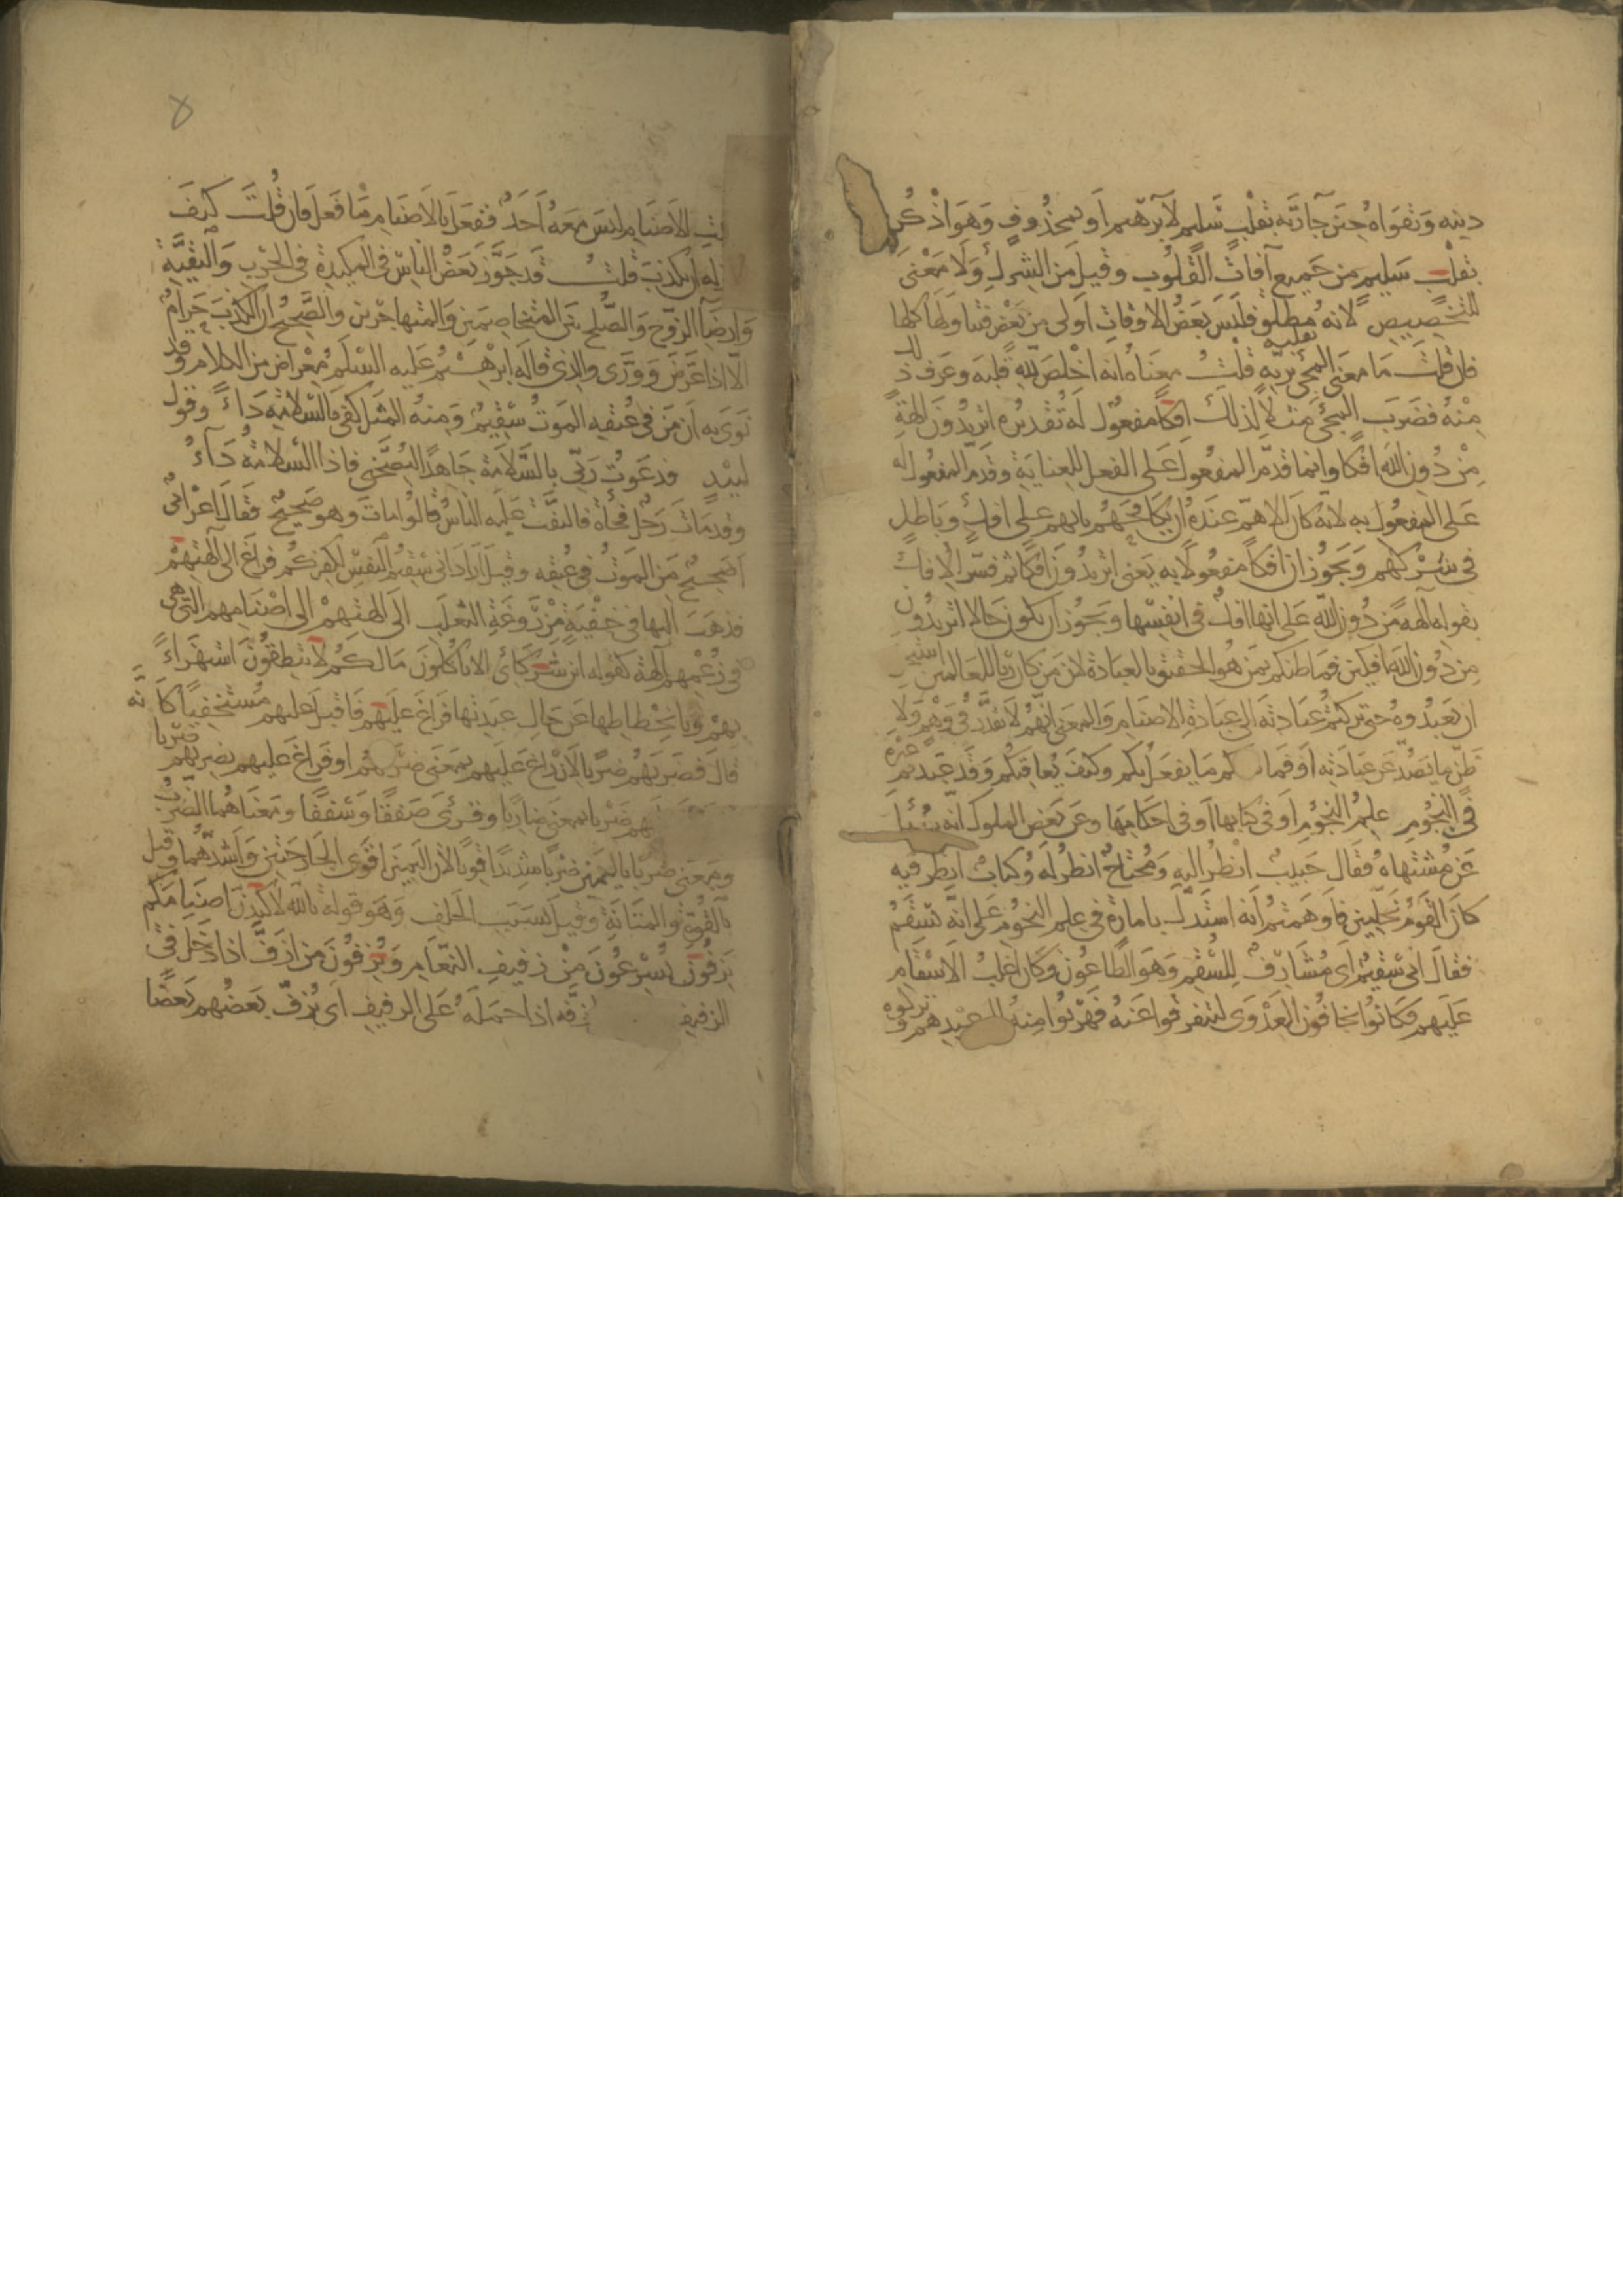 دينه وتقواه حين جا ربه بقلب سليم لابرهيم او بمحذوف وهو اذكر
بقلب سليم من جميع آفات القلوب وقيل من الشرك ولا معنى
للتخصيص لانه مطلق فليس بعض الاوقات اولى من بعض فتناولها كلها
فان قلت ما معنى المجئ بقلبه ربه قلت معناه انه اخلص لله قلبه وعرف ذلك
منه فضرب المجئ مثلا لذلك افكا مفعول له تقديره اتريدون الهة
من دون الله افكا وانما قدم المفعول على الفعل للعناية وقدم المفعول له
على المفعول به لانه كان الاهم عنده ان يكافحهم بانهم على افك وباطل
فى شركهم ويجوز ان افكا مفعولا به يعنى اتريدون افكا ثم فسر الافك
بقوله آلهة من دون الله على انها افك فى انفسها ويجوز ان يكون حالا اتريدون
من دون الله افكين فما ظنكم بمن هو الحقيق بالعبادة لان من كان ربا للعالمين استحق
ان يعبدوه حتى تركتم عبادته الى عبادة الاصنام والمعنى انهم لا يقدر فى وهم ولا
ظن ما يصد عن عبادته او فما كم ما يفعل بكم وكيف يعاقبكم وقد عبدتم غيره
فى النجوم علم النجوم او فى كتابها او فى احكامها وعن بعض الملوك انه سئل
عن مشتهاه فقال حبيب انظر اليه ومحتاج انظر له وكتاب انظر فيه
كان القوم نجامين فاوهمتهم انه استدل بامارة فى علم النجوم على انه يسقم
فقال انى سقيم اى مشارف للسقم وهو الطاعون وكان اغلب الاسقام
عليهم وكانوا يخافون العدوى ليتفرقوا عنه فهربوا منه الى عيدهم وتركوه
بيت الاصنام ليس معه احد ففعل بالاصنام ما فعل فان قلت كيف
له ان يكذب قلت قد جوز بعض الناس فى المكيدة فى الحرب والتقية
وارضا الزوج والصلح بين المتخاصمين والمتهاجرين والصحيح ان الكذب حرام
الا اذا عرض وورى والذى قاله ابرهيم عليه السلم معراض من الكلام وقد
نوى به ان من فى عنقه الموت سقيم ومنه المثل كفى بالسلامة داء وقول
لبيد فدعوت ربى بالسلامة جاهدا ليصحنى فاذا السلامة داء
وقد مات رجل فجأة فالتفت عليه الناس قالوا مات وهو صحيح فقال اعرابى
أصحيح من الموت فى عنقه وقيل اراد انى سقيم النفس لكفركم فراغ الى آلهتهم
فذهب اليها فى خفية من روغة الثعلب الى الهتهم الى اصنامهم التى هى
فى زعمهم آلهة كقوله اين شركائى الا تاكلون ما لكم لا تنطقون استهزاء
بهم وبانحطاطها عن حال عبدتها فراغ عليهم فاقبل عليهم مستخفيا كانه
قال فضربهم ضربا لان راغ عليهم بمعنى ضربهم او فراغ عليهم يضربهم ضربا
هم ضربا بمعنى ضاربا وقرئ صفقا وسفقا ومعناهما الضرب
ومعنى ضربا باليمين ضربا شديدا قويا لان اليمين اقوى الجارحتين واشدهما وقيل
بالقوة والمتانة وقيل بسبب الحلف وهو قوله تالله لاكيدن اصنامكم
يزفون يسرعون من زفيف النعام ويزفون من ازف اذا دخل فى
الزفيف زفه اذا حمله على الزفيف اى يزف بعضهم بعضا